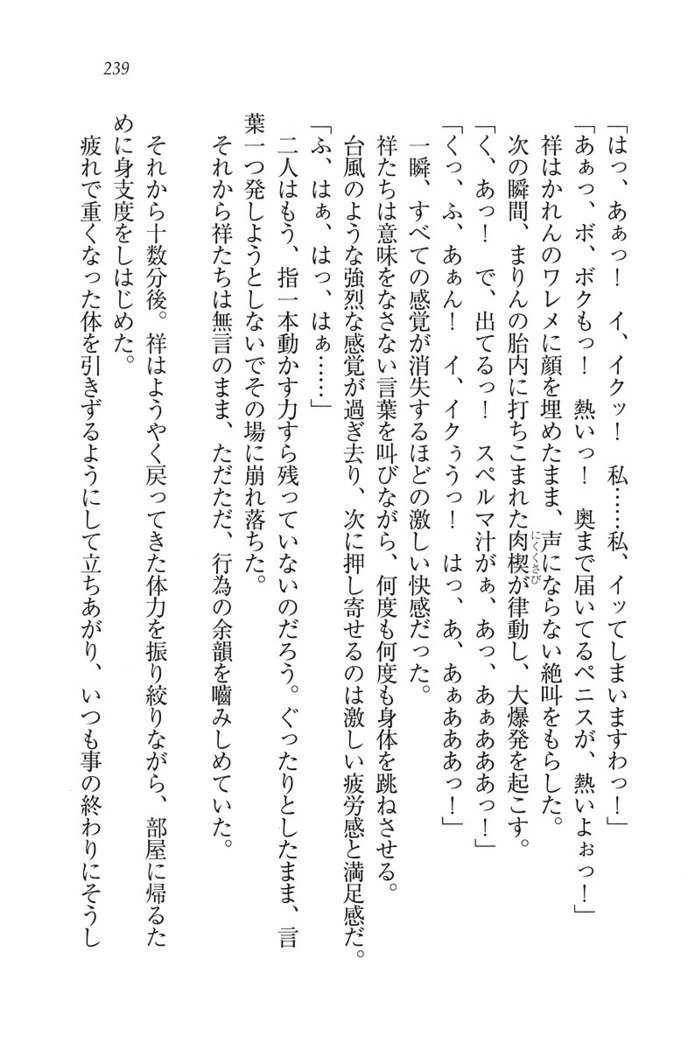 239
「はっ、あぁっ！　イ、イクッ！　私……私、イッてしまいますわっ！」
「あぁっ、ボ、ボクもっ！　熱いっ！　奥まで届いてるペニスが、熱いよぉっ！」
祥はかれんのワレメに顔を埋めたまま、声にならない絶叫をもらした。
次の瞬間、まりんの胎内に打ちこまれた肉楔が律動し、大爆発を起こす。
にくくさび
「く、あっ！　で、出てるっ！　スペルマ汁がぁ、あっ、あぁああぁっ！」
「くっ、ふ、あぁん！　イ、イクぅうっ！　はっ、あ、あぁあああっ！」
一瞬、すべての感覚が消失するほどの激しい快感だった。
祥たちは意味をなさない言葉を叫びながら、何度も何度も身体を跳ねさせる。
台風のような強烈な感覚が過ぎ去り、次に押し寄せるのは激しい疲労感と満足感だ。
「ふ、はぁ、はっ、はぁ……」
二人はもう、指一本動かす力すら残っていないのだろう。ぐったりとしたまま、言
葉一つ発しようとしないでその場に崩れ落ちた。
それから祥たちは無言のまま、ただただ、行為の余韻を嚙みしめていた。
それから十数分後。祥はようやく戻ってきた体力を振り絞りながら、部屋に帰るた
めに身支度をしはじめた。
疲れで重くなった体を引きずるようにして立ちあがり、いつも事の終わりにそうし